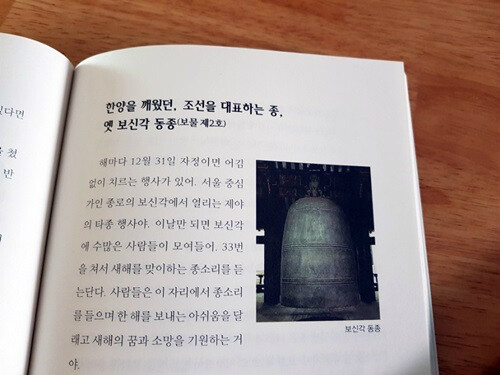 있다면
을 쳤
반
한양을 깨웠던, 조선을 대표하는 종,
옛 보신각 동종(보물 제2호)
해마다 12월 31일 자정이면 어김
없이 치르는 행사가 있어. 서울 중심
가인 종로의 보신각에서 열리는 제야
의 타종 행사야. 이날만 되면 보신각
에 수많은 사람들이 모여들어. 33번
을 쳐서 새해를 맞이하는 종소리를 듣
는단다. 사람들은 이 자리에서 종소리
를 들으며 한 해를 보내는 아쉬움을 달
래고 새해의 꿈과 소망을 기원하는 거
야.
보신각 동종